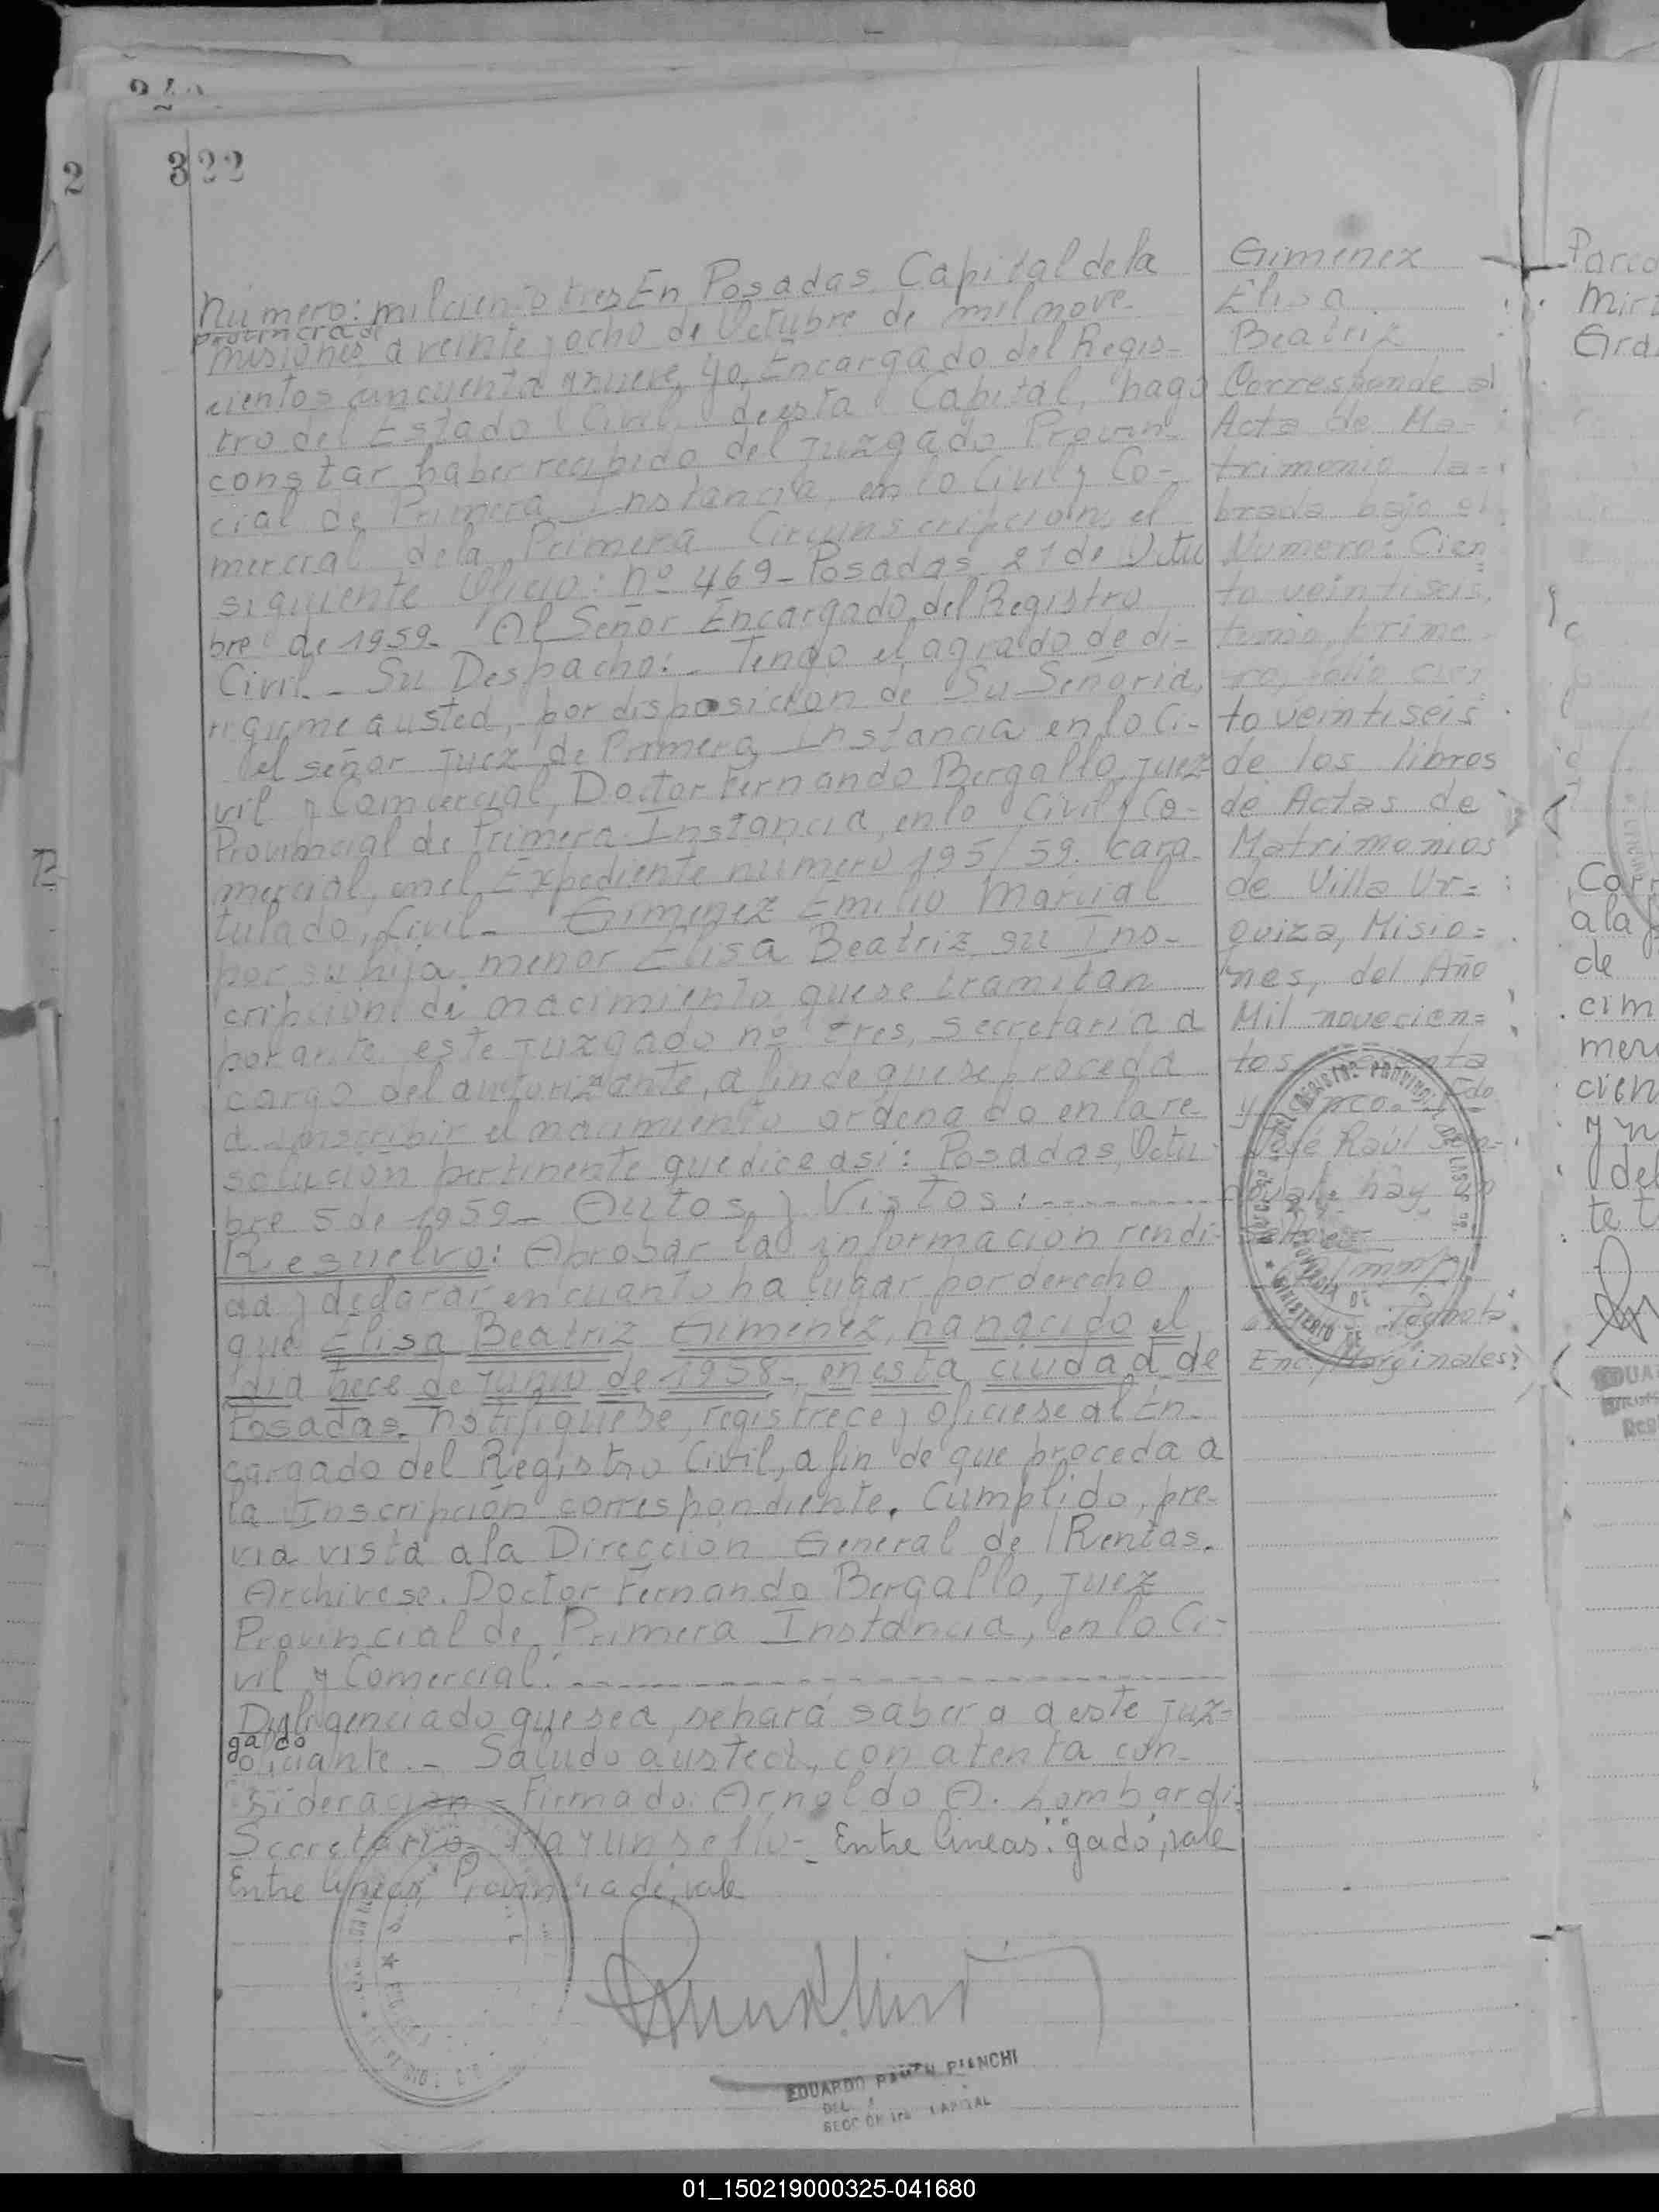 322
2
Número: mil ciento tres En Posadas, Capital de la
Provincia de
Misiones a veinte y ocho de Octubre de mil nove-
cientos cincuenta y nueve, yo, Encargado del Regis-
tro del Estado Civil, de esta Capital, hago
constar haber recibido del Juzgado Provin-
cial de Primera Instancia, en lo Civil y Co-
mercial, de la Primera Circunscripción, el
siguiente Oficio: nº 469 - Posadas 21 de Octu
bre de 1959. Al Señor Encargado del Registro
Civil - Su Despacho: - Tengo el agrado de di-
rigirme a usted, por disposición de Su Señoria,
el señor Juez de Primera Instancia en lo Ci-
vil y Comercial, Doctor Fernando Bergallo, Juez
Provincial de Primera Instancia, en lo Civil y Co-
mercial, en el Expediente número 195/59. cara-
tulado, Civil - Gimenez Emilio Marcial
por su hija menor Elisa Beatriz su Ins-
cripción de nacimiento que se tramitan
por ante este Juzgado nº tres, secretaria a
cargo del autorizante, a fin de que se proceda
a inscribir el nacimiento ordenado en la re-
solución pertinente que dice asi: Posadas, Octu-
bre 5 de 1959 - Autos y Vistos: ----------
Resuelvo: Aprobar la información rendi-
da y declarar en cuanto ha lugar por derecho
que Elisa Beatriz Gimenez, ha nacido el
dia trece de Junio de 1958 -, en esta ciudad de
Posadas. Notifiquese, registrece y oficiese al En-
cargado del Registro Civil, a fin de que proceda a
la Inscripción correspondiente. Cumplido, pre-
via vista a la Dirección General de Rentas.
Archivese. Doctor Fernando Bergallo, Juez
Provincial de Primera Instancia, en lo Ci-
vil y Comercial. --------------------
Diligenciado que sea, se hará saber a a este Juz-
gado
oficiante. - Saludo a usted, con atenta con-
sideración - Firmado: Arnoldo A. Lombardi.
Secretario - Hay un sello - Entre lineas: "gado", vale
Entre lineas, Provincia de, vale
EDUARDO RAMÓN BIANCHI
DEL
SECCION 1ra CAPITAL
Gimenez
Elisa
Beatriz
Corresponde al
Acta de Ma-
trimonio la-
brada bajo el
Numero: Cien
to veintiseis,
tomo prime
ro, folio cien
to veintiseis
de los libros
de Actas de
Matrimonios
de Villa Ur-
quiza, Misio-
nes, del Año
Mil novecien-
tos
José Raúl
hay un
Enc. Marginales:
Parco
Mirt
Corr
a la
de
cim
mero
cien
y n
del
te t
01_150219000325-041680